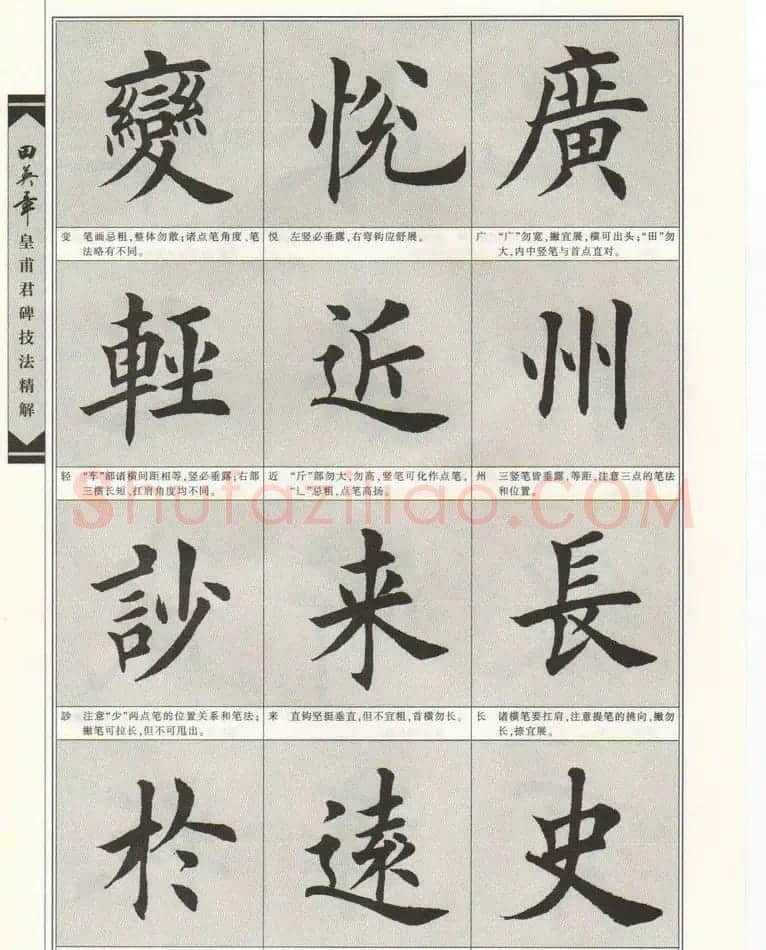 田英章
皇甫君碑技法精解
變 悦 廣
变 笔画忌粗,整体勿散;诸点笔角度、笔
法略有不同。
悦 左竖必垂露,右弯钩应舒展。
广 “广”勿宽,撇宜展,横可出头;“田”勿
大,内中竖笔与首点直对。
輕 近 州
轻 “车”部诸横间距相等,竖必垂露;右部
三横长短、扛肩角度均不同。
近 “斤”部勿大、勿高,竖笔可化作点笔,
“辶”忌粗,点笔高扬。
州 三竖笔皆垂露、等距,注意三点的笔法
和位置。
Shufaziliao.COM
訬 来 長
訬 注意“少”两点笔的位置关系和笔法;
撇笔可拉长,但不可甩出。
来 直钩坚挺垂直,但不宜粗,首横勿长。
长 诸横笔要扛肩,注意提笔的挑向,撇勿
长,捺宜展。
於 遠 史